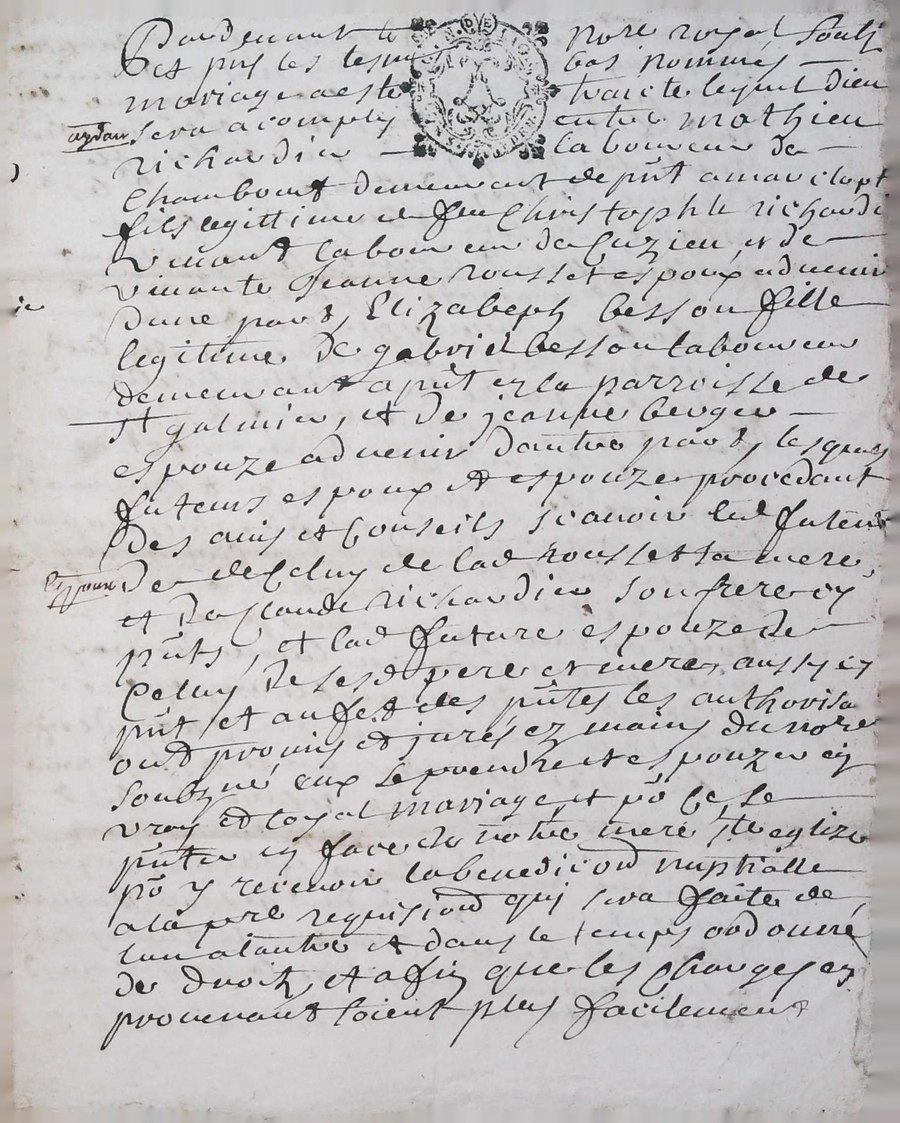 Pardevant le nore royal soubz
et pnts les tesm bas nommés
mariage a este traicte lequel Dieu
aydan sera acomply entre mathieu
richardin laboureur de
Chambœuf demeurant de pnt a
fils legittime de feu Christophle richardi
vivant laboureur de Cuzieu et de
vivante Jeanne rousset espoux advenir
dune part, Elizabeph besson fille
legitime de gabriel besson laboureur
demeurant a pnt en la parroisse de
st galmier, et de jeanne berger
espouze advenir dautre part, lesquels
futeurs espoux et espouze procedant
des avis et Conseils scavoir led futeur
espoux de de Celuy de lad rousset sa mere,
et de Claude richardin son frere cy
pnts, et lad future espouze de
Celuy de sesd pere et mere, aussy cy
pnt et au fet des pntes les authorisa
ont promis et jurés ez mains du nore
soubzné eux se prendre et espouzer en
vray et loyal mariage, et po ce se
pnter en face de notre mere ste eglize
po y recevoir la benediction nuptialle
a la pre requision qui sera faite de
lun a lautre et dans le temps ordonné
de droit, et afin que les Charges en
provenant soient plus facilement